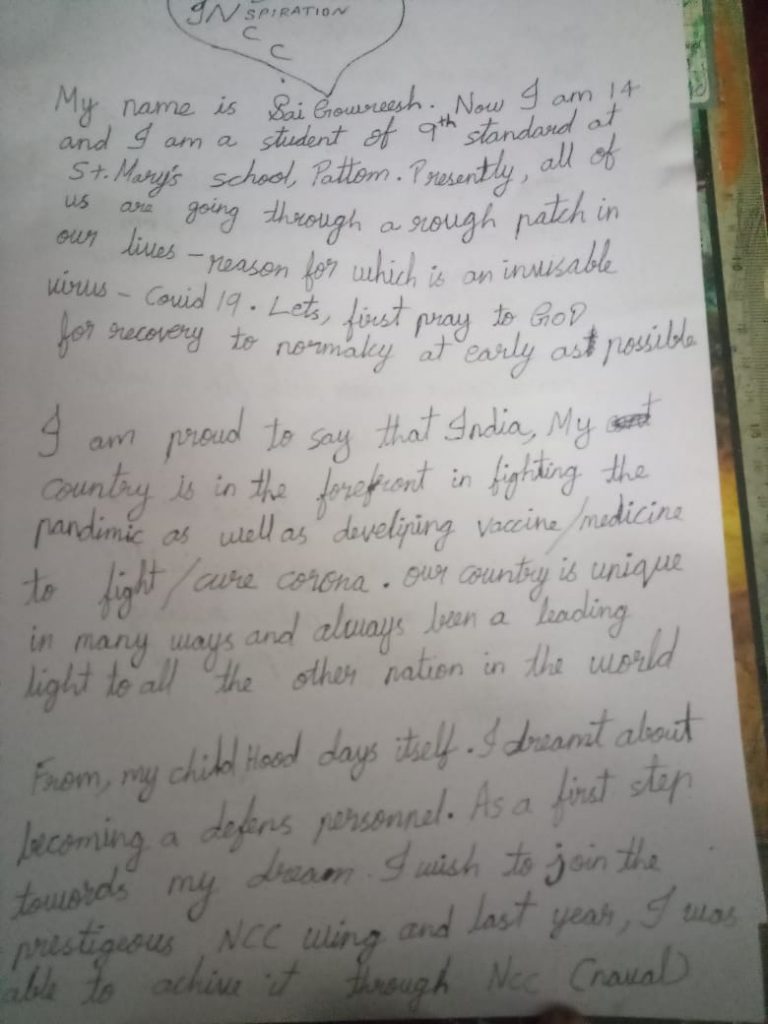 INSPIRATION
C
C
My name is Sai Gowreesh. Now I am 14
and I am a student of 9th standard at
St. Mary's school, Pattom. Presently, all of
us are going through a rough patch in
our lives - reason for which is an invisable
virus - Covid 19. Lets, first pray to GOD
for recovery to normaky at early ast possible
I am proud to say that India, My
country is in the forefront in fighting the
pandimic as well as develiping vaccine/medicine
to fight/cure corona. our country is unique
in many ways and always been a leading
light to all the other nation in the world
From, my child Hood days itself. I dreamt about
becoming a defens personnel. As a first step
towords my dream. I wish to join the
prestigeous NCC wing and last year, I was
able to achive it through Ncc (naval)